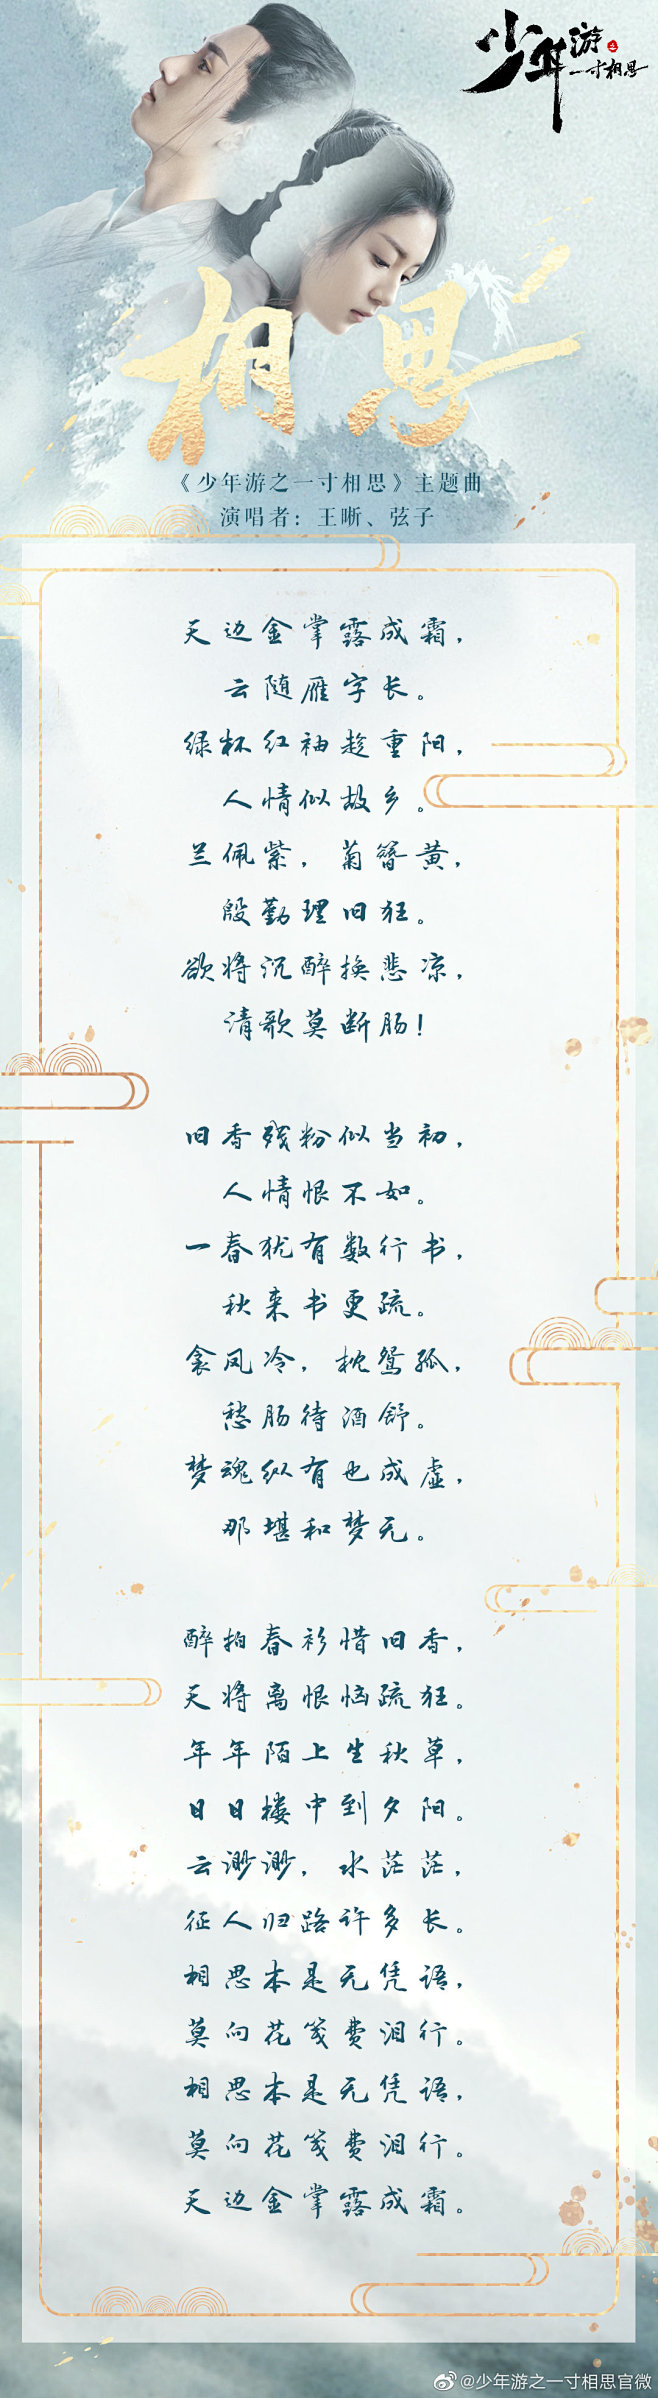 少年游
之
一寸相思
相思
《少年游之一寸相思》主题曲
演唱者：王晰、弦子
天边金掌露成霜，
云随雁字长。
绿杯红袖趁重阳，
人情似故乡。
兰佩紫，菊簪黄，
殷勤理旧狂。
欲将沉醉换悲凉，
清歌莫断肠！
旧香残粉似当初，
人情恨不如。
一春犹有数行书，
秋来书更疏。
衾凤冷，枕鸳孤，
愁肠待酒舒。
梦魂纵有也成虚，
那堪和梦无。
醉拍春衫惜旧香，
天将离恨恼疏狂。
年年陌上生秋草，
日日楼中到夕阳。
云渺渺，水茫茫，
征人归路许多长。
相思本是无凭语，
莫向花笺费泪行。
相思本是无凭语，
莫向花笺费泪行。
天边金掌露成霜。
@少年游之一寸相思官微